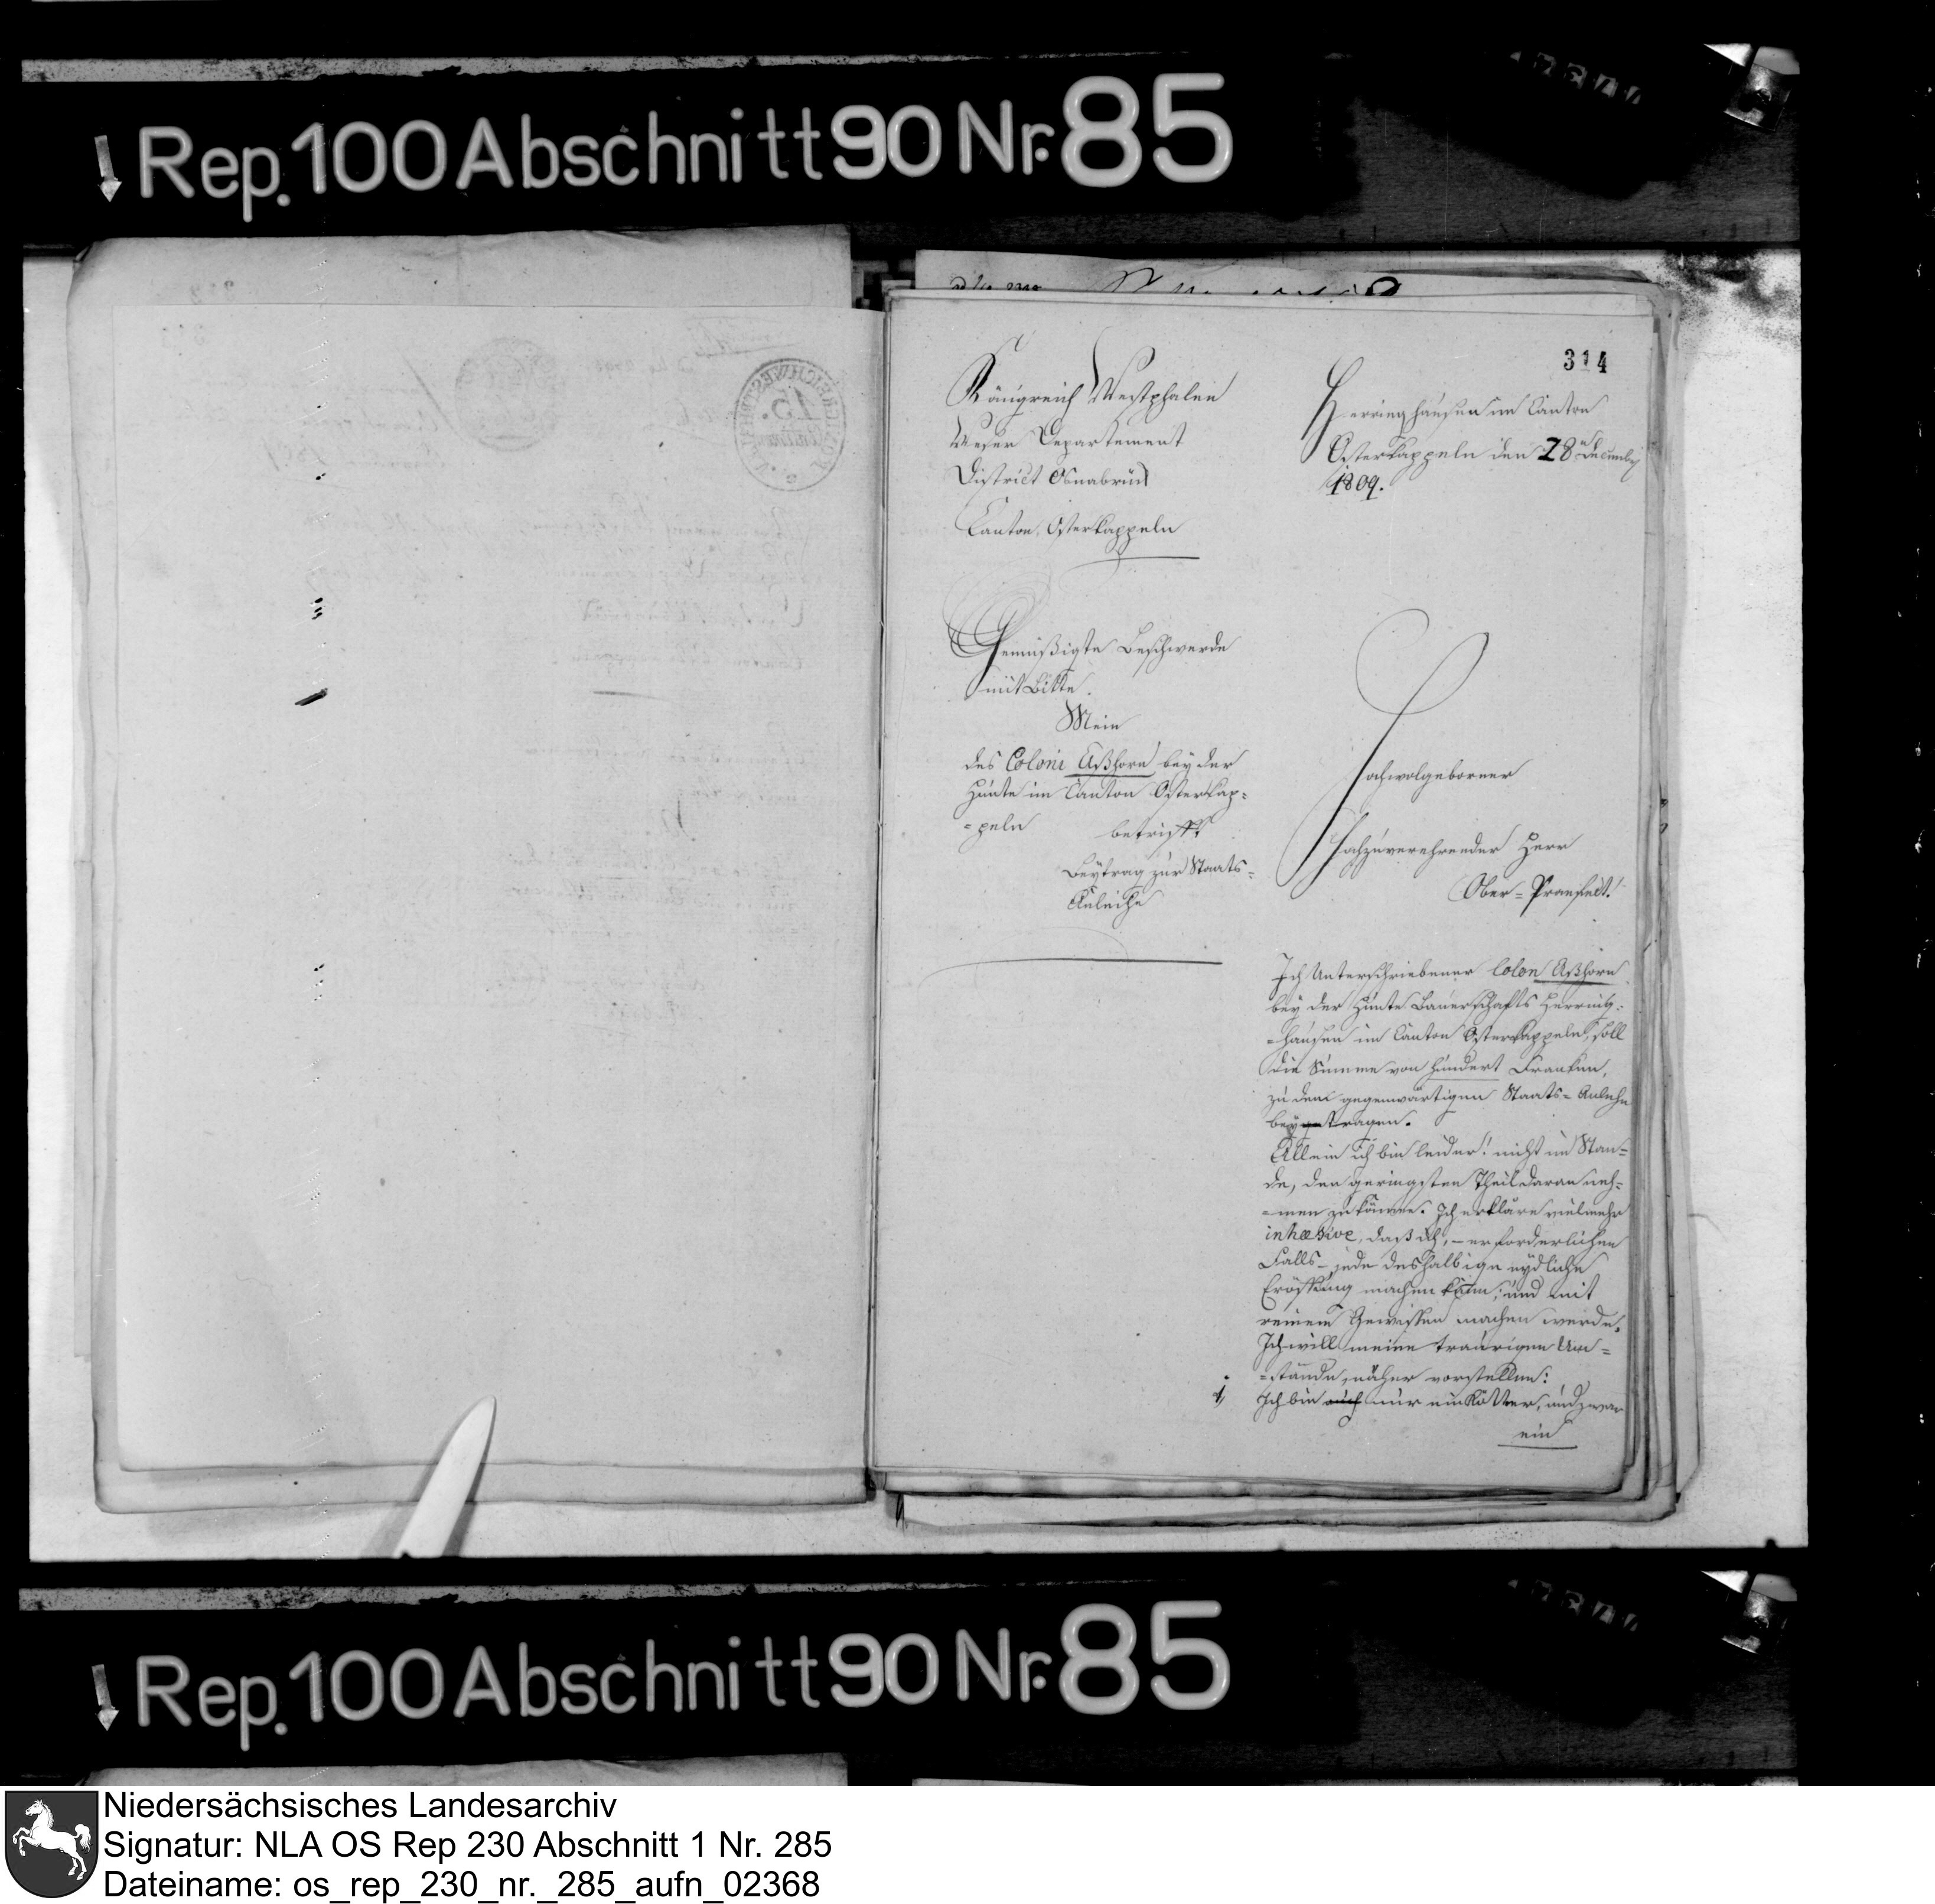 Rep. 100 Abschnitt 90 Nr. 85
314
Königreich Westphalen
Weser Departement
District Osnabrück
Canton Osterkappeln
Herringhausen im Canton
Osterkappeln den 28ten Decembr
1809.
Gemüßigte Beschwerde
mit Bitte.
Mein
des Coloni Aßhorn bey der
Hunte im Canton Osterkap=
=peln betrifft
Beytrag zur Staats=
Anleihe
Hochwolgeborner
Hochzuverehrender Herr
Ober=Praefect!
Ich Unterschriebener Colon Aßhorn
bey der Hunte Bauerschafts Herring=
=hausen im Canton Osterkappeln, soll
die Summe von hundert Franken,
zu dem gegenwärtigen Staats=Anlehn
beytragen.
Allein ich bin leider! nicht im Stan=
de, den geringsten Theil daran neh=
=men zu können. Ich erkläre vielmehr
inhæsive, daß ich, – erforderlichen
Falls – jede deshalbige eydliche
Eröffnung machen kann, und mit
reinem Gewissen machen werde.
Ich will meine traurigen Um=
=stände, näher vorstellen:
1, Ich bin auch nur ein Kötter, und zwar
ein
Rep. 100 Abschnitt 90 Nr. 85
Niedersächsisches Landesarchiv
Signatur: NLA OS Rep 230 Abschnitt 1 Nr. 285
Dateiname: os_rep_230_nr._285_aufn_02368